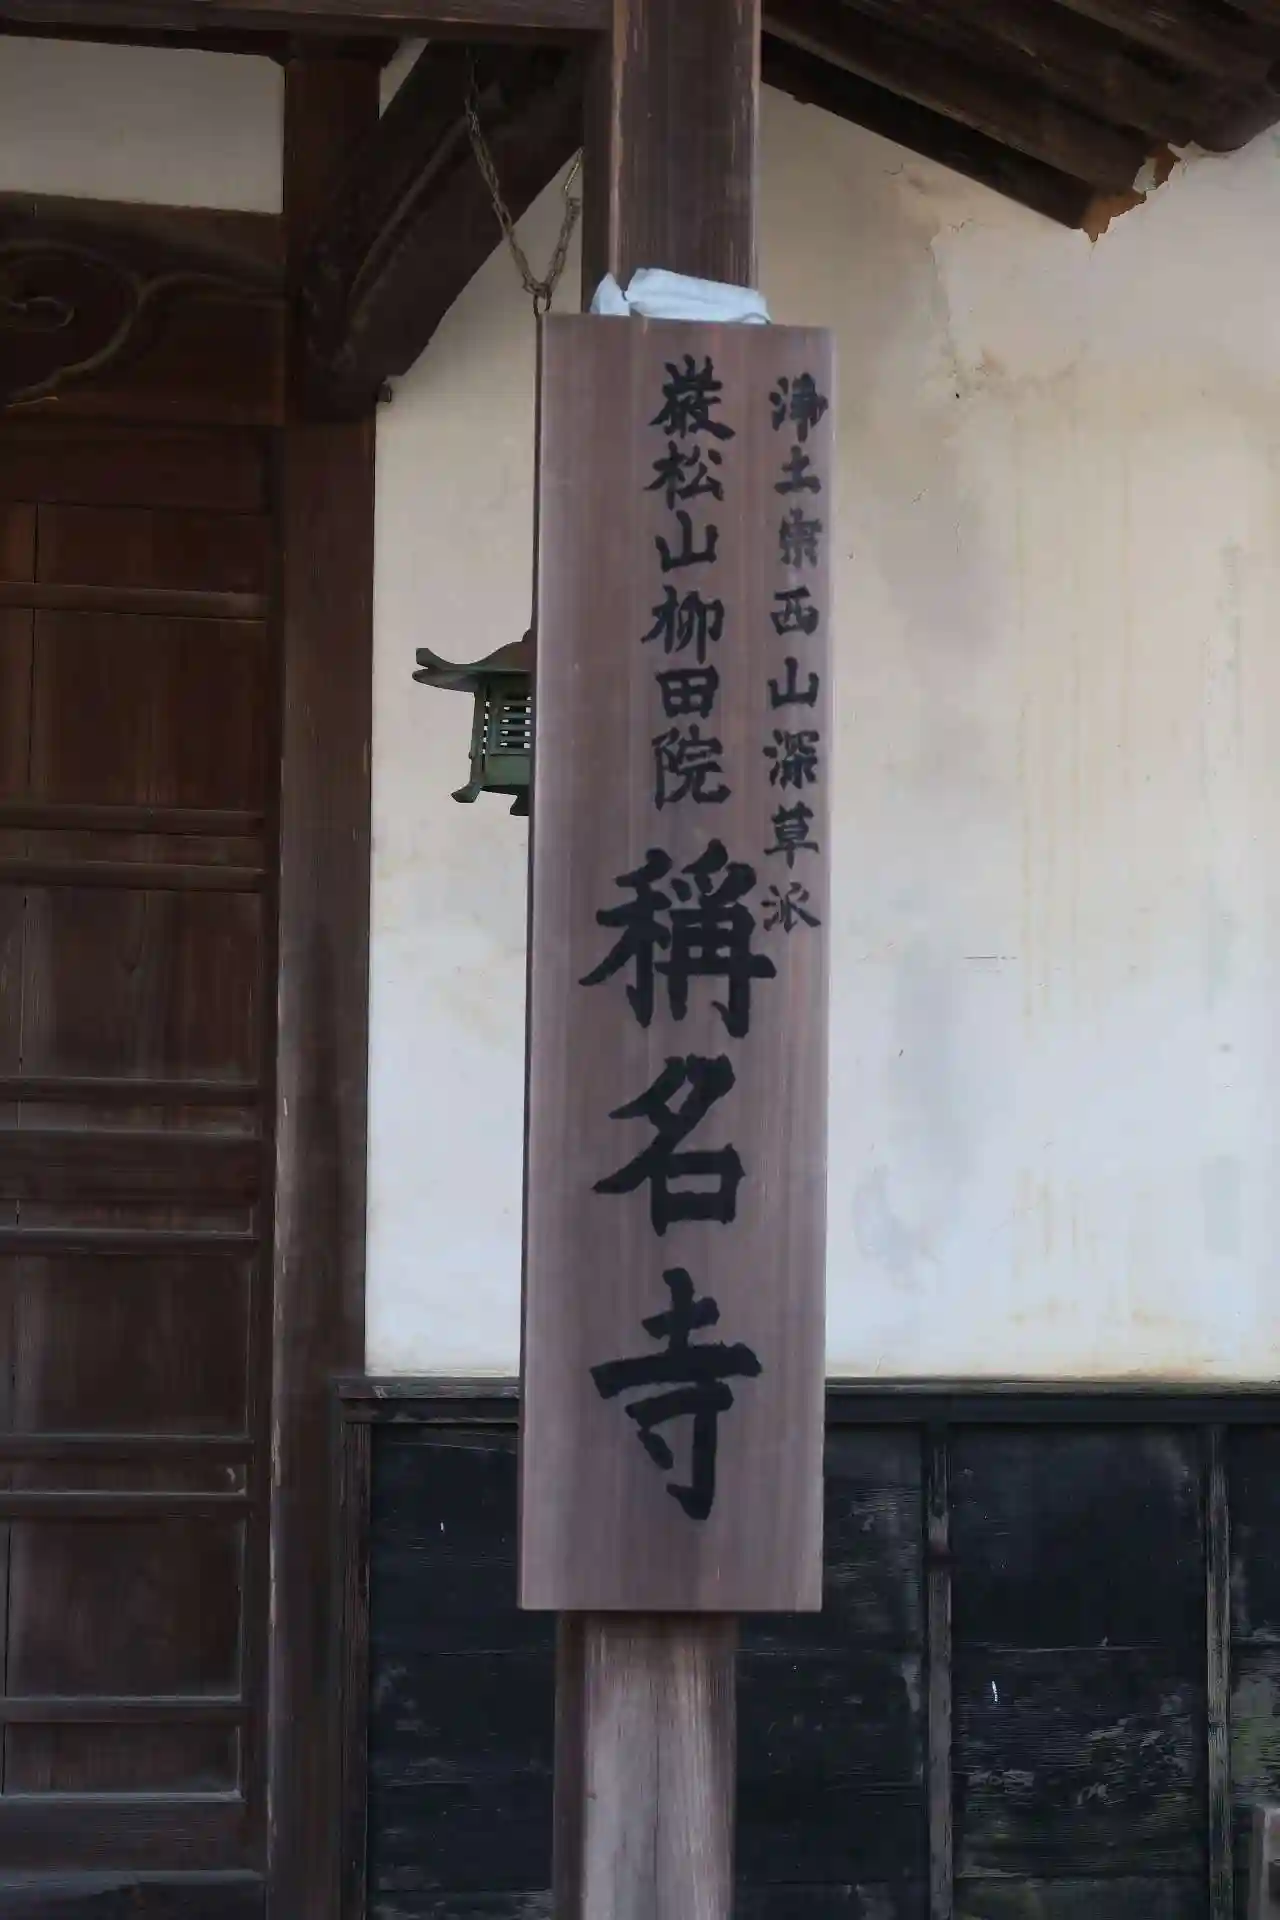 浄土宗西山深草派
巌松山柳田院
稱名寺